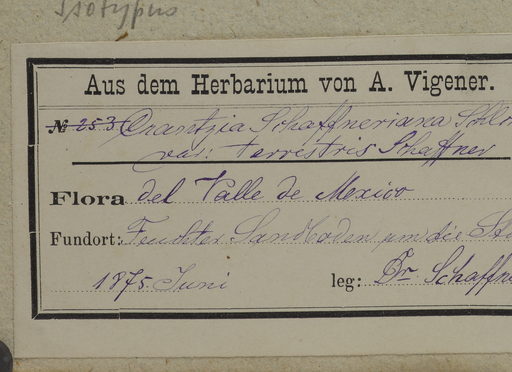 Isotypus
Aus dem Herbarium von A. Vigener.
№ 253 Crantzia Schaffneriana Schl
var: terrestris Schaffner
Flora del Valle de Mexico
Fundort: Feuchter Sandboden um die
1875 Juni leg: Dr Schaffne